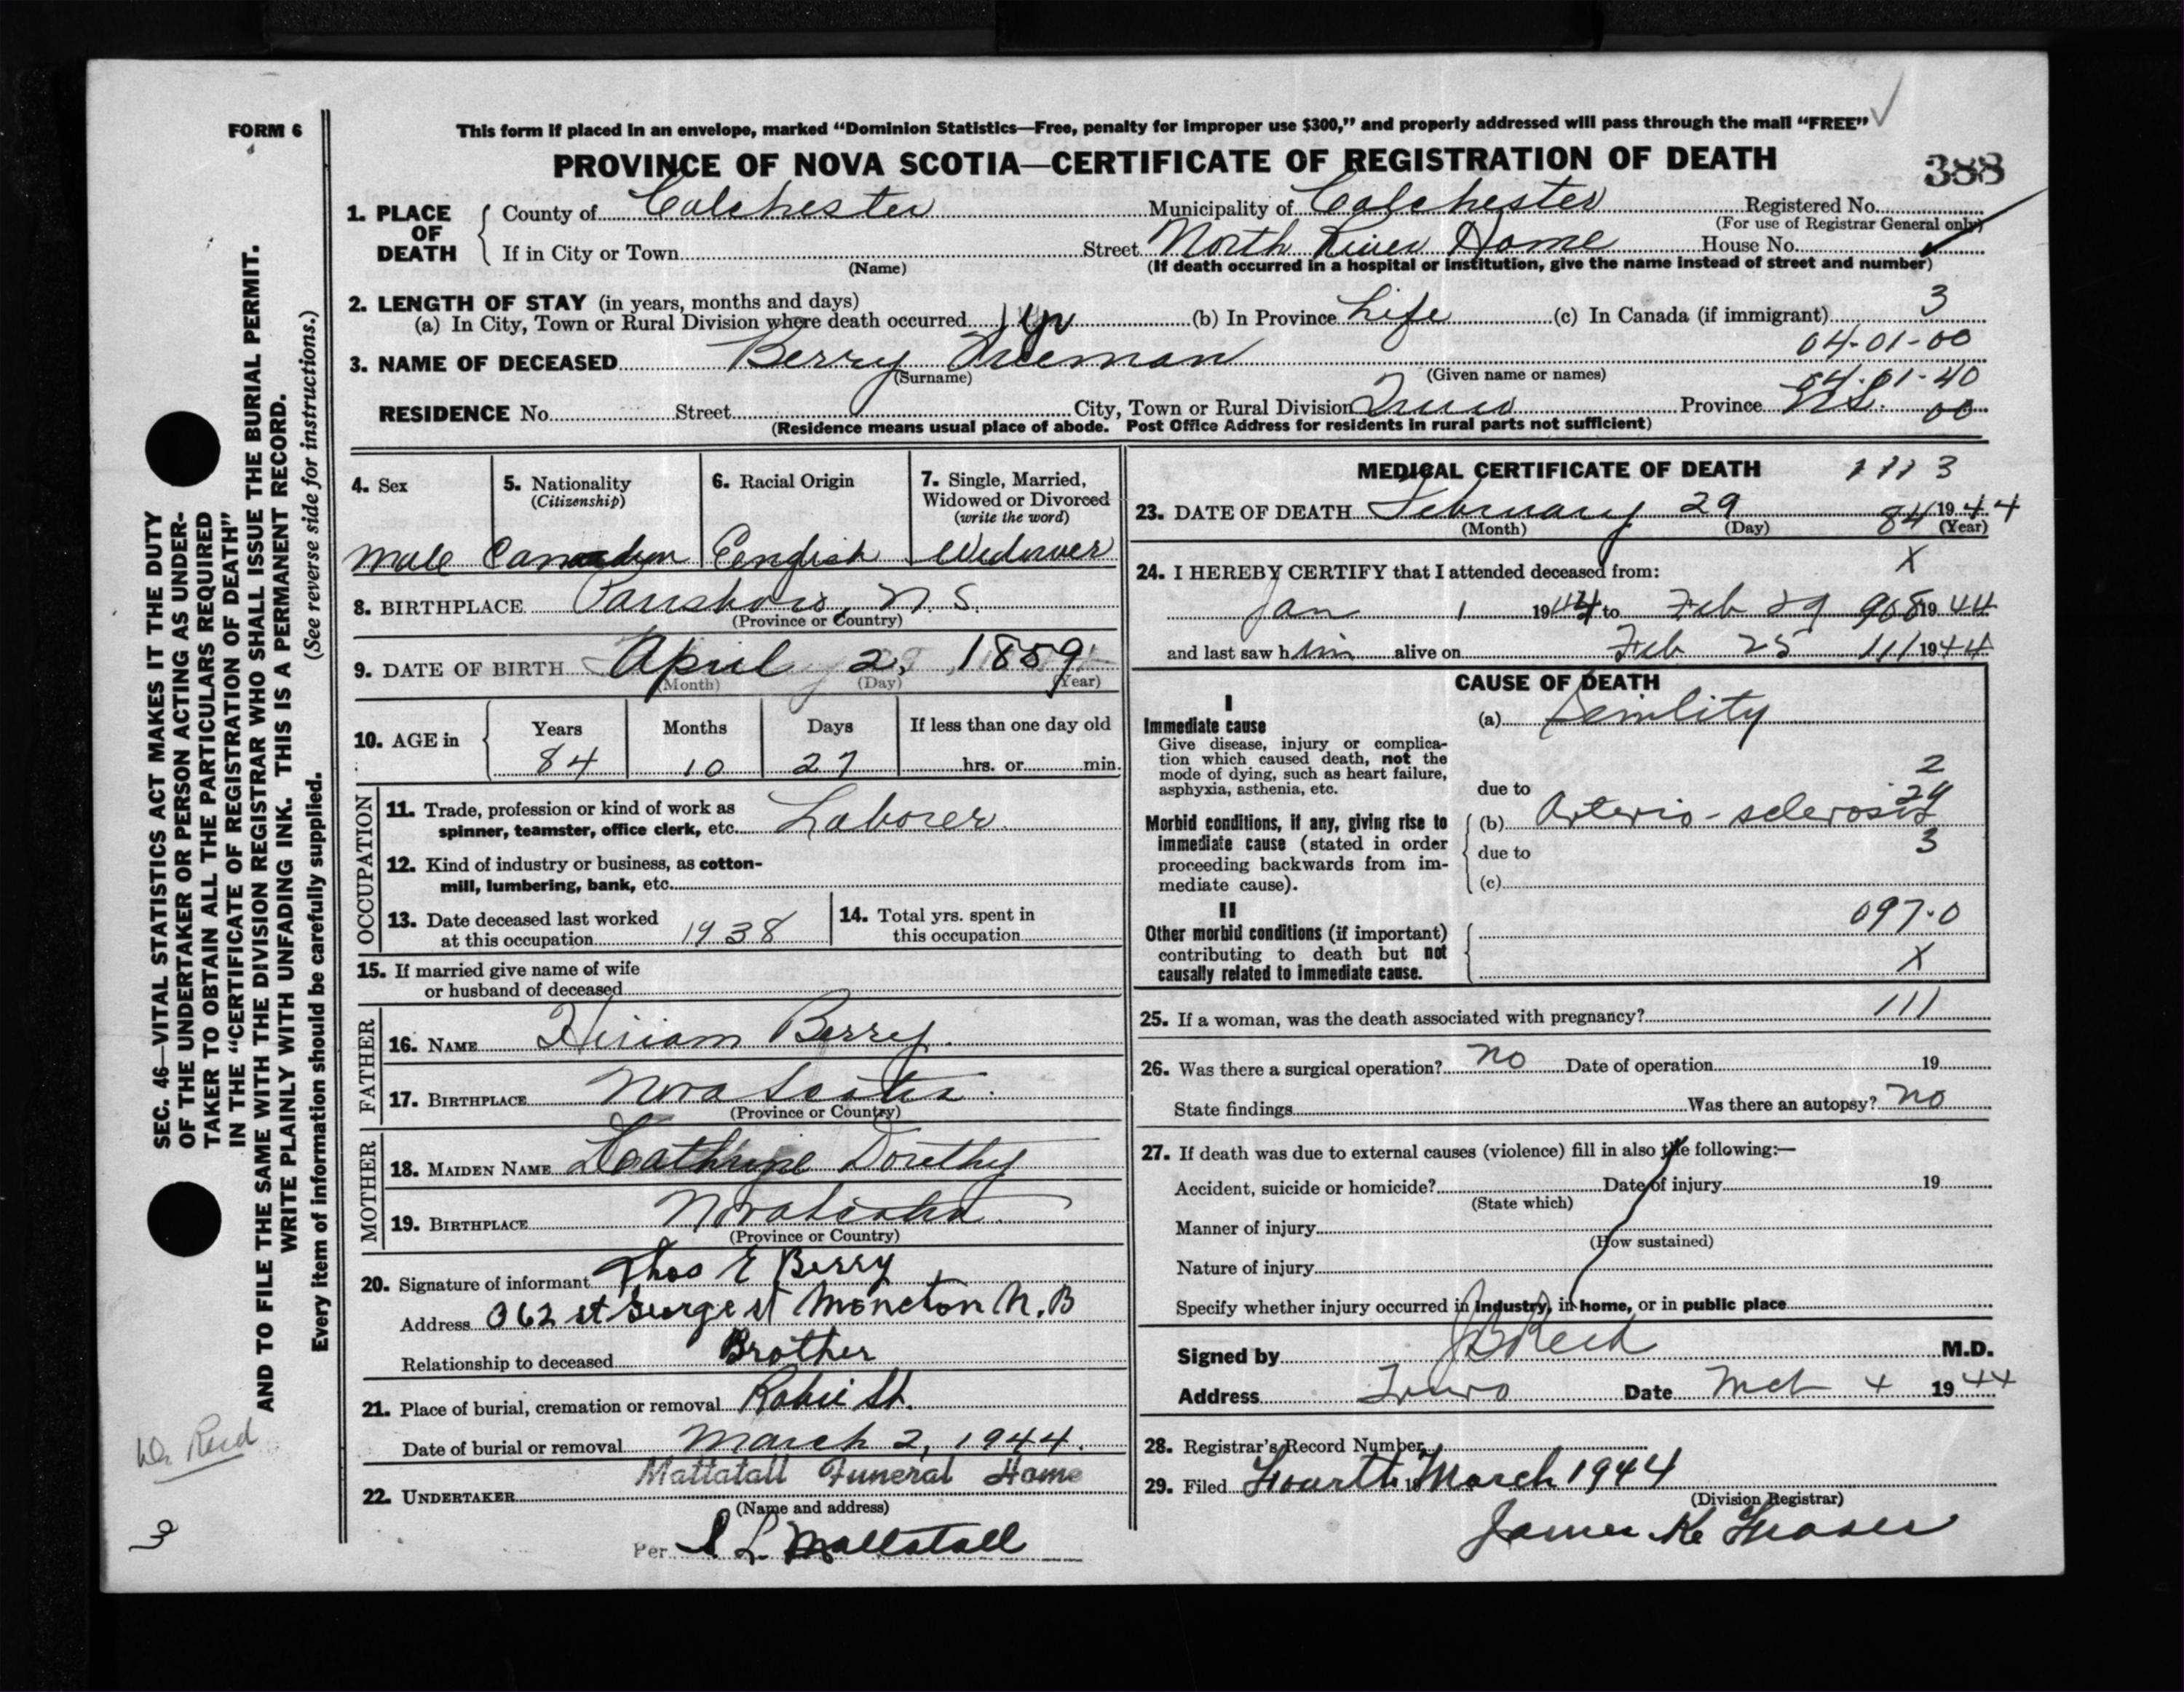 FORM 6
This form if placed in an envelope, marked “Dominion Statistics—Free, penalty for improper use $300,” and properly addressed will pass through the mail “FREE”
PROVINCE OF NOVA SCOTIA—CERTIFICATE OF REGISTRATION OF DEATH
388
1. PLACE OF DEATH County of Colchester Municipality of Colchester Registered No.
(For use of Registrar General only)
If in City or Town Street North River Home House No.
(Name) (If death occurred in a hospital or institution, give the name instead of street and number)
2. LENGTH OF STAY (in years, months and days)
(a) In City, Town or Rural Division where death occurred 1 yr (b) In Province Life (c) In Canada (if immigrant) 3
04-01-00
3. NAME OF DECEASED Berry Freeman
(Surname) (Given name or names)
04-01-40
RESIDENCE No. Street City, Town or Rural Division Truro Province N.S. 00
(Residence means usual place of abode. Post Office Address for residents in rural parts not sufficient)
4. Sex
Male
5. Nationality
(Citizenship)
Canadian
6. Racial Origin
English
7. Single, Married,
Widowed or Divorced
(write the word)
Widower
8. BIRTHPLACE Parrsboro, N.S.
(Province or Country)
9. DATE OF BIRTH April 2, 1859
(Month) (Day) (Year)
10. AGE in Years Months Days If less than one day old
84 10 27 hrs. or min.
OCCUPATION
11. Trade, profession or kind of work as
spinner, teamster, office clerk, etc. Laborer
12. Kind of industry or business, as cotton-
mill, lumbering, bank, etc.
13. Date deceased last worked
at this occupation 1938
14. Total yrs. spent in
this occupation
15. If married give name of wife
or husband of deceased
FATHER
16. NAME Hiriam Berry
17. BIRTHPLACE Nova Scotia
(Province or Country)
MOTHER
18. MAIDEN NAME Dorethy
19. BIRTHPLACE Nova Scotia
(Province or Country)
20. Signature of informant Thos E Berry
Address 362 St George st Moncton N.B
Relationship to deceased Brother
21. Place of burial, cremation or removal Robie St.
Date of burial or removal March 2, 1944.
Mattatall Funeral Home
22. UNDERTAKER
(Name and address)
Per S L Mattatall
MEDICAL CERTIFICATE OF DEATH 1113
23. DATE OF DEATH February 29 84 1944
(Month) (Day) (Year)
24. I HEREBY CERTIFY that I attended deceased from: X
Jan 1 1944 to Feb 29 968 1944
and last saw him alive on Feb 25 111 1944
CAUSE OF DEATH
I
Immediate cause
Give disease, injury or complica-
tion which caused death, not the
mode of dying, such as heart failure,
asphyxia, asthenia, etc.
(a) Senility
2
due to
24
Morbid conditions, if any, giving rise to
immediate cause (stated in order
proceeding backwards from im-
mediate cause).
(b) Arterio-sclerosis
3
due to
(c)
II
Other morbid conditions (if important)
contributing to death but not
causally related to immediate cause.
097.0
X
25. If a woman, was the death associated with pregnancy? 111
26. Was there a surgical operation? No Date of operation 19
State findings Was there an autopsy? No
27. If death was due to external causes (violence) fill in also the following:—
Accident, suicide or homicide? Date of injury 19
(State which)
Manner of injury
(How sustained)
Nature of injury
Specify whether injury occurred in Industry, in home, or in public place
Signed by J B Reid M.D.
Address Truro Date Mch 4 1944
28. Registrar's Record Number
29. Filed Fourth 19 March 1944
(Division Registrar)
James K Fraser
SEC. 46—VITAL STATISTICS ACT MAKES IT THE DUTY
OF THE UNDERTAKER OR PERSON ACTING AS UNDER-
TAKER TO OBTAIN ALL THE PARTICULARS REQUIRED
IN THE “CERTIFICATE OF REGISTRATION OF DEATH”
AND TO FILE THE SAME WITH THE DIVISION REGISTRAR WHO SHALL ISSUE THE BURIAL PERMIT.
WRITE PLAINLY WITH UNFADING INK. THIS IS A PERMANENT RECORD.
Every item of information should be carefully supplied. (See reverse side for instructions.)
Dr Reid
3